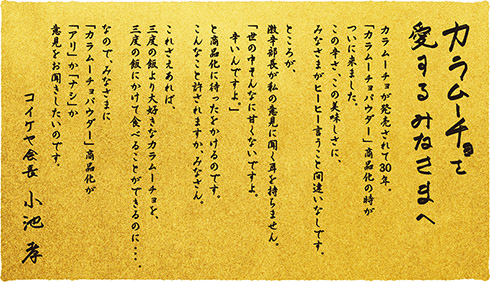 カラムーチョを
愛するみなさまへ
カラムーチョが発売されて30年。
「カラムーチョパウダー」商品化の時が
ついに来ました。
この辛さ、この美味しさに、
みなさまがヒーヒー言うこと間違いなしです。
ところが、
激辛部長が私の意見に聞く耳を持ちません。
「世の中そんなに甘くないですよ。
辛いんですよ。」
と商品化に待ったをかけるのです。
こんなこと許されますか、みなさん。
これさえあれば、
三度の飯より大好きなカラムーチョを、
三度の飯にかけて食べることができるのに・・・。
なので、みなさまに
「カラムーチョパウダー」商品化が
「アリ」か「ナシ」か
意見をお聞きしたいのです。
コイケヤ会長 小池孝